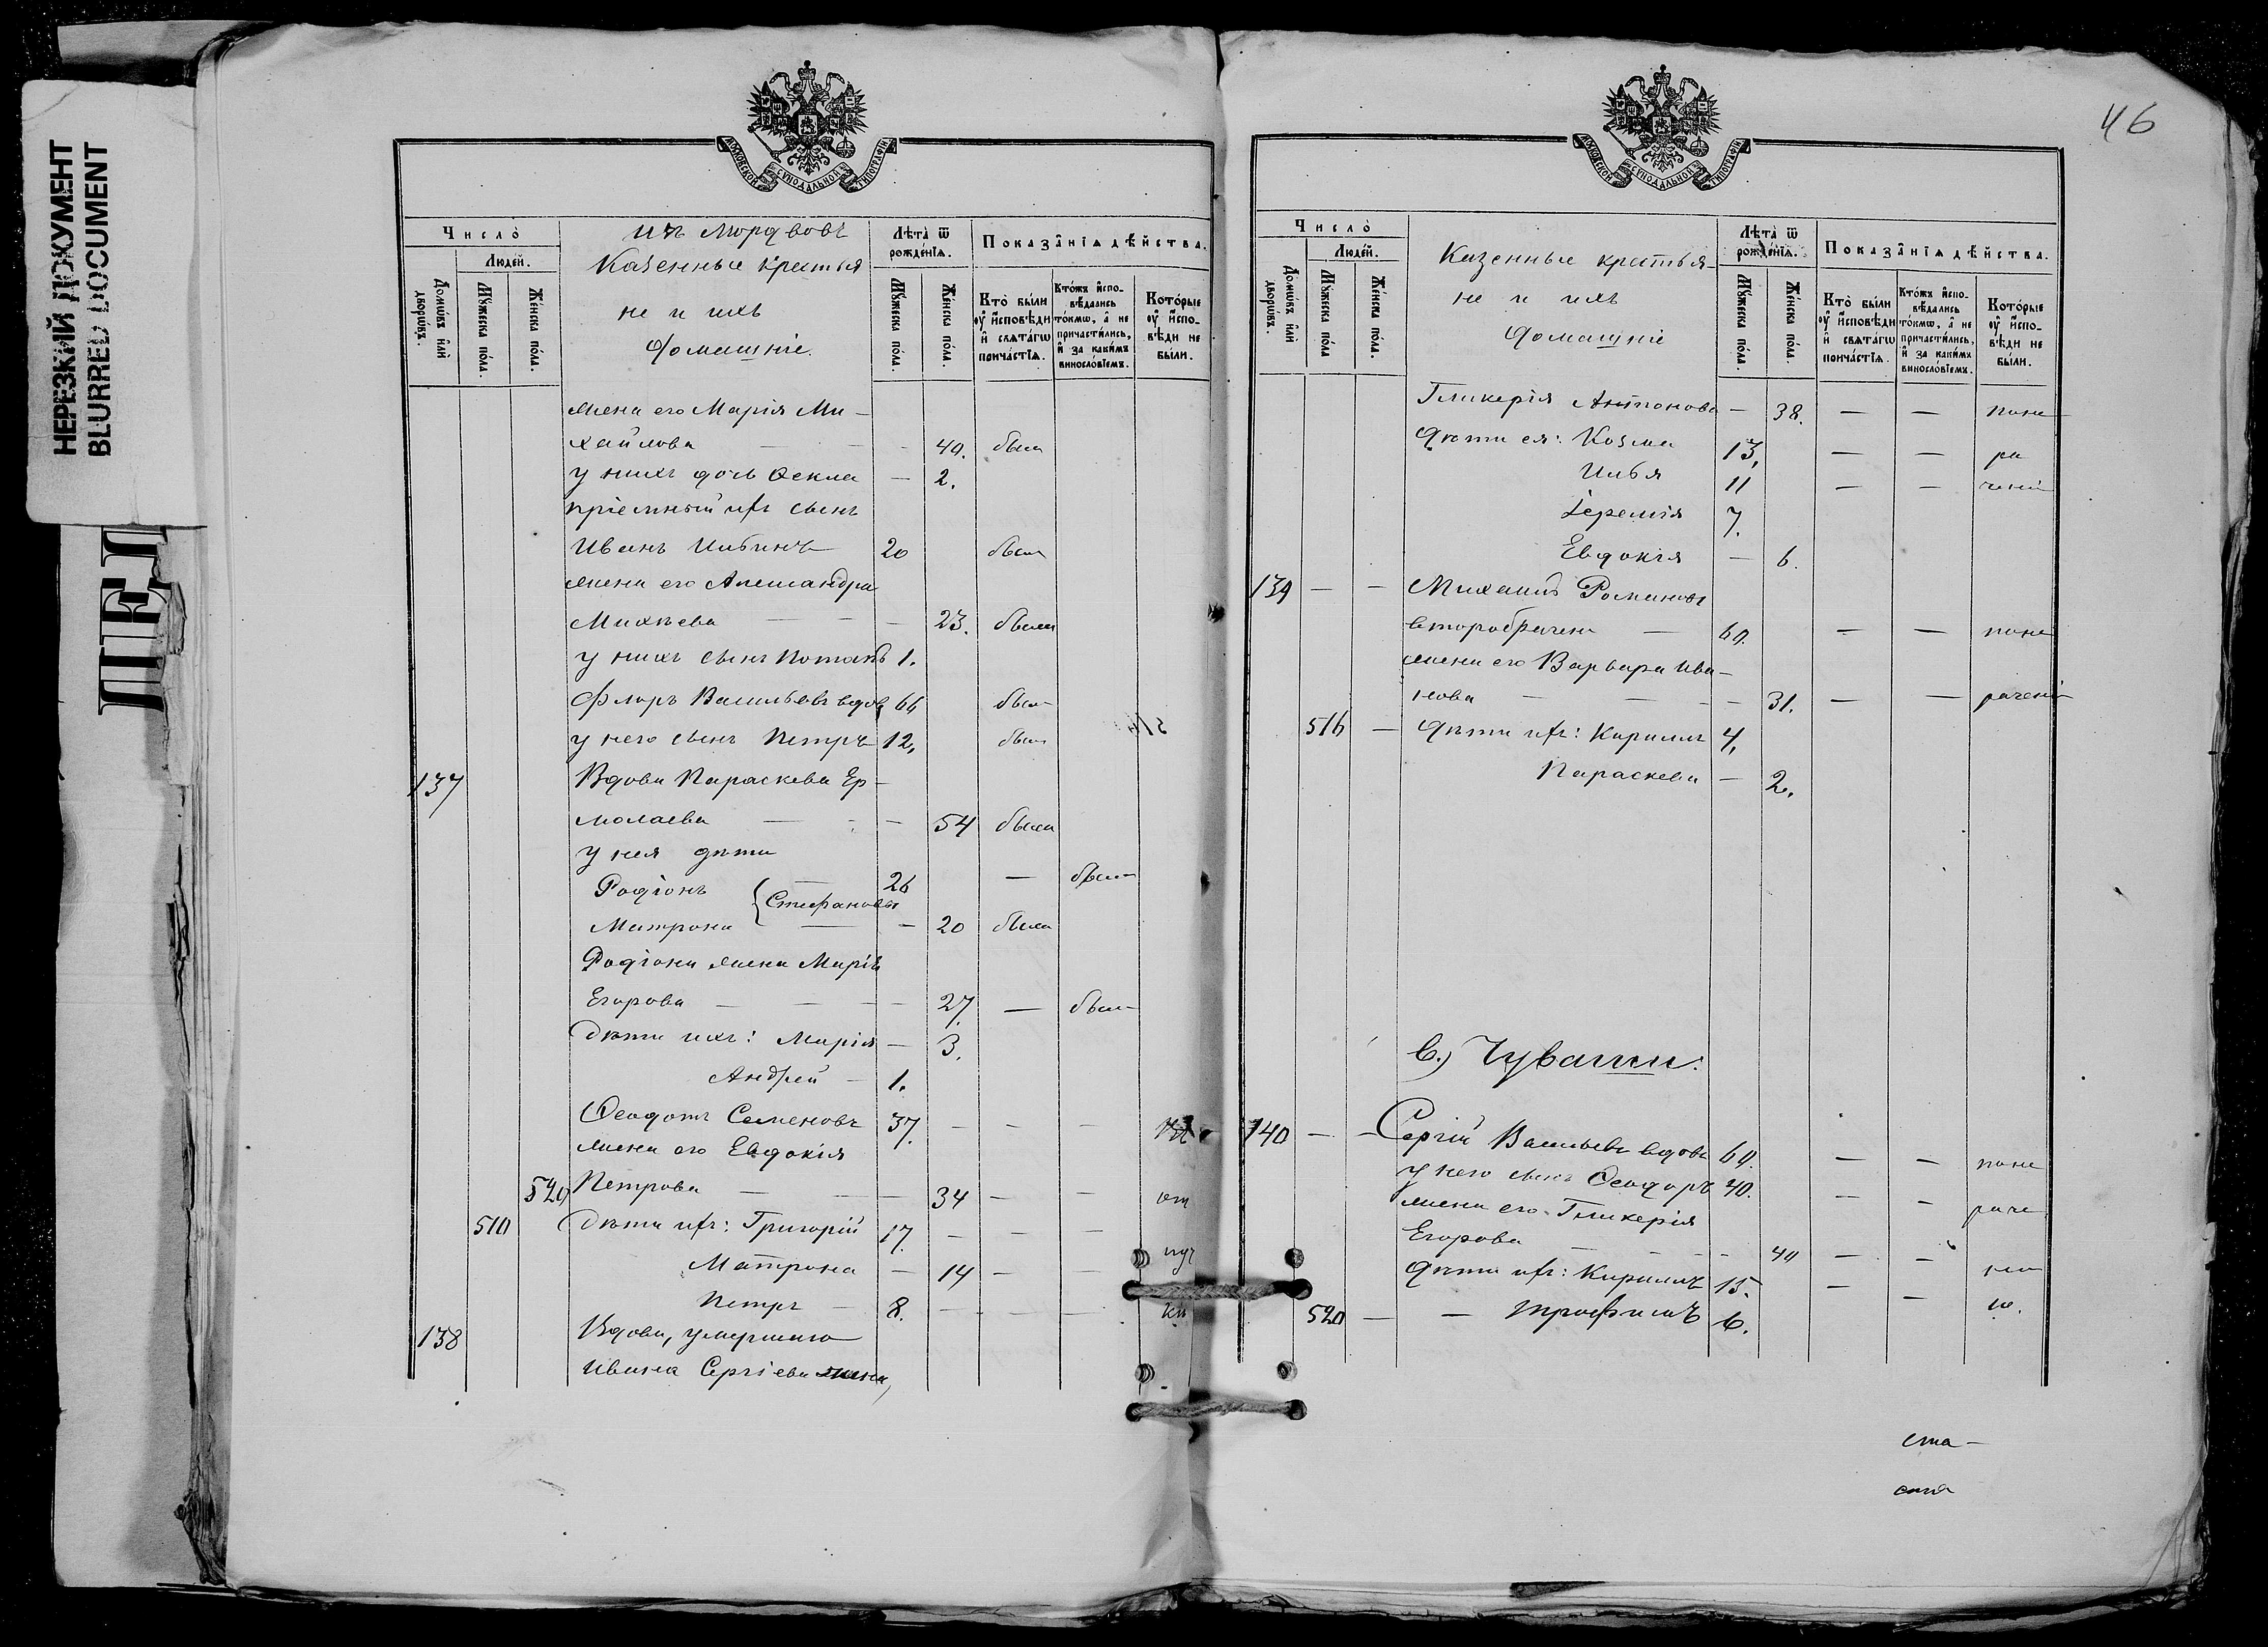 НЕРЕЗКИЙ ДОКУМЕНТ
BLURRED DOCUMENT
МОСКОВСКОЙ СѴНОДАЛЬНОЙ ТИПОГРАФІИ
Число̀
Люде́й.
Домѡ́въ и҆лѝ дворѡ́въ.
Мꙋ́жеска по́ла.
Же́нска по́ла.
изъ Мордвовъ
Казенные крестья
не и ихъ
домашніе.
Лѣ́та ѿ рожде́нїѧ.
Мꙋ́жеска по́ла.
Же́нска по́ла.
Показа̑нїѧ дѣ́йства.
Кто̀ бы́ли ᲂу҆ и҆сповѣди и҆ свѧта́гѡ прича́стїѧ.
Кто́жъ и҆сповѣ́дались то́кмѡ, а҆ не причасти́лись, и҆ за каки́мъ винослові́емъ.
Кото́рые ᲂу҆ и҆сповѣ́ди не бы́ли.
жена его Марія Ми-
хайлова — — — 40. была
у нихъ дочь Ѳекла — 2.
пріемный ихъ сынъ
Иванъ Ильинъ 20 былъ
жена его Александра
Михѣева — — — 23. была
у нихъ сынъ Потапъ 1.
Флоръ Васильевъ вдов 66 былъ
у него сынъ Петръ 12, былъ
137 Вдова Параскева Ер-
молаева — — — 54 была
у нея дѣти
Родіонъ — 26 — былъ
{Стефановы
Матрона — — 20 была
Родіона жена Марія
Егорова — — — 27. — была
Дѣти ихъ: Марія — 3.
Андрей — 1.
Ѳеодотъ Семеновъ 37. — — —
жена его Евдокія
520 Петрова — — — 34 — — от
510 Дѣти ихъ: Григорій 17. — — —
Матрона — 14 — —
Петръ — 8. — — —
138 Вдова, умершаго
Ивана Сергіева жена,
46
МОСКОВСКОЙ СѴНОДАЛЬНОЙ ТИПОГРАФІИ
Число̀
Люде́й.
Домѡ́въ и҆лѝ дворѡ́въ.
Мꙋ́жеска по́ла
Же́нска по́ла.
Казенные крестья-
не и ихъ
домашніе
Лѣ́та ѿ рожде́нїѧ.
Мꙋ́жеска по́ла.
Же́нска по́ла.
Показа̑нїѧ дѣ́йства.
Кто̀ бы́ли ᲂу҆ и҆сповѣди и҆ свѧта́гѡ прича́стїѧ.
Кто́жъ и҆сповѣ́дались то́кмѡ, а҆ не причасти́лись, и҆ за каки́мъ винослові́емъ.
Кото́рые ᲂу҆ и҆сповѣ́ди не бы́ли.
Гликерія Антонова — 38. — — по не
дѣти ея: Козма 13, — — ра
Илья 11 — —
Іеремія 7.
Евдокія — 6.
139 — — Михаилъ Романовъ
второбрачен — 60. — — по не
жена его Варвара Ива-
нова — — — 31. — —
516 — дѣти ихъ: Кириллъ 4,
Параскева — 2.
в.) Чуваши:
140 — — Сергій Васильевъ вдовъ 60. — — по не
у него сынъ Ѳеодоръ 40. — —
жена его Гликерія
Егорова — — — 40 — —
дѣти ихъ: Кириллъ 15. — —
520 — — Трофимъ 6.